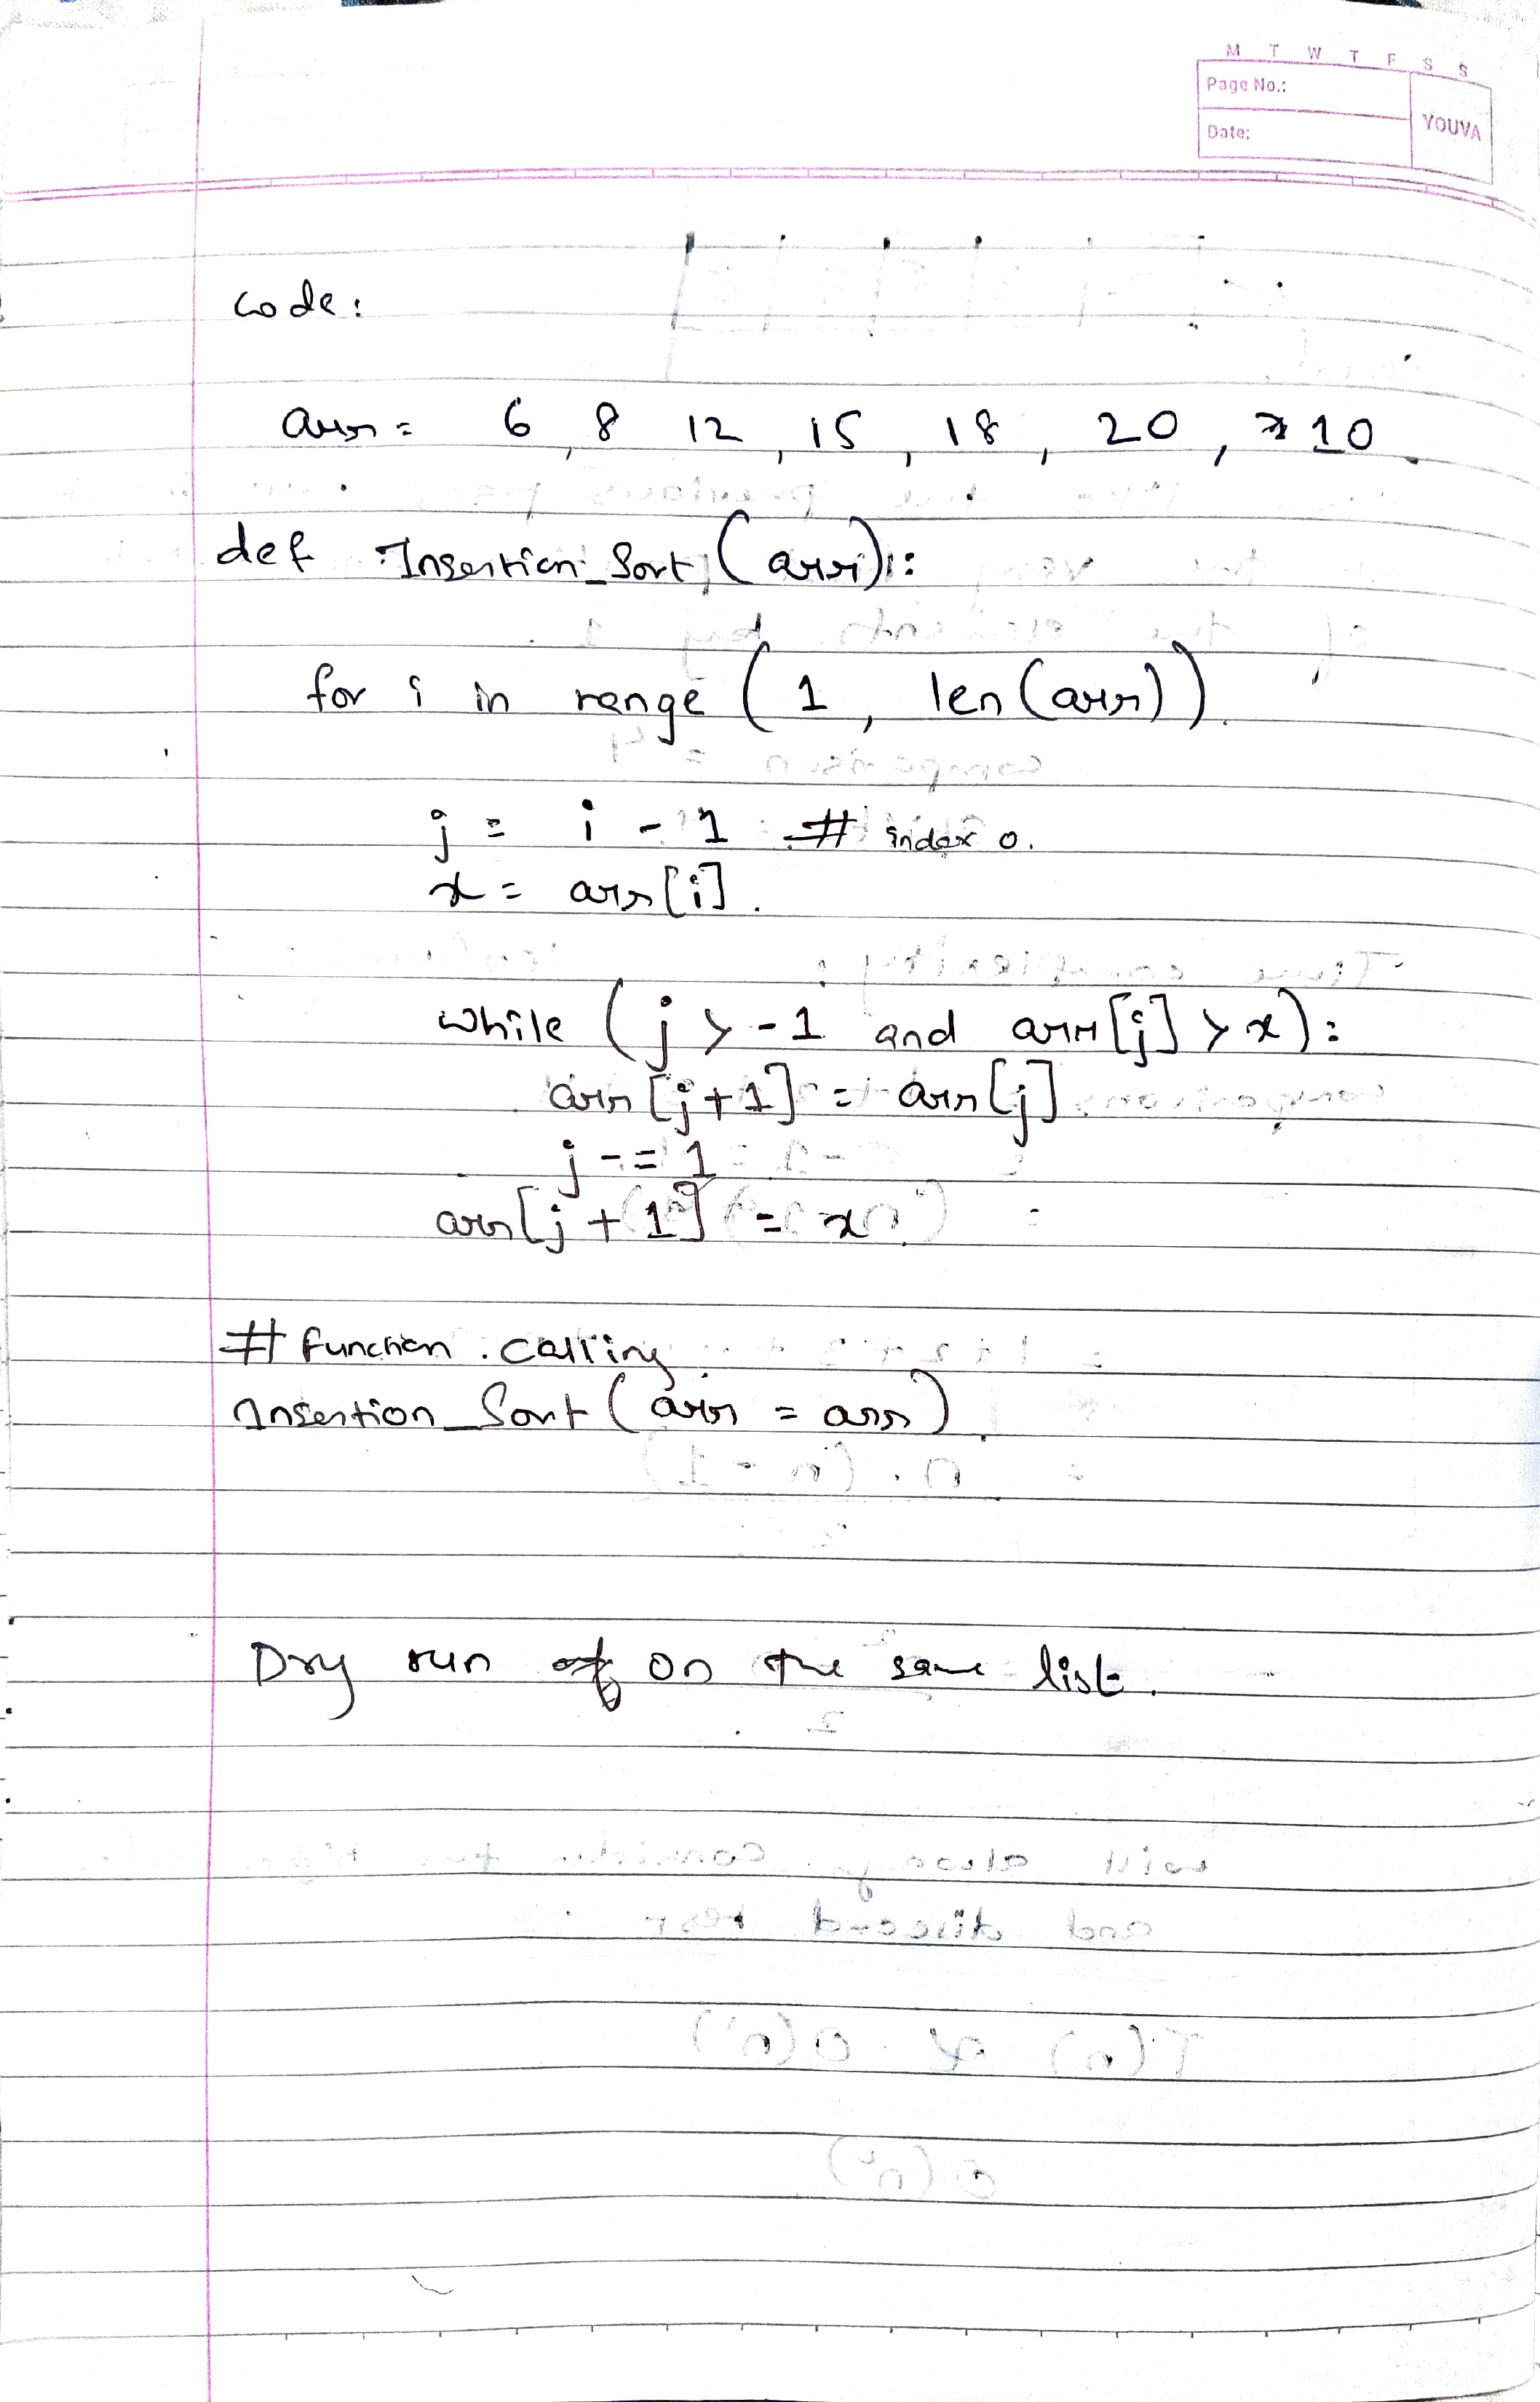 M T W T F S S
Page No.:
Date:
YOUVA
code:
arr = 6, 8 12, 15, 18, 20, 10.
def Insertion_Sort (arr):
for i in range (1, len(arr)).
j = i - 1 # index 0.
x = arr[i].
while (j > -1 and arr[j] > x):
arr[j+1] = arr[j]
j -= 1
arr[j + 1] = x.
# function calling
Insertion_Sort (arr = arr).
Dry run on the same list.